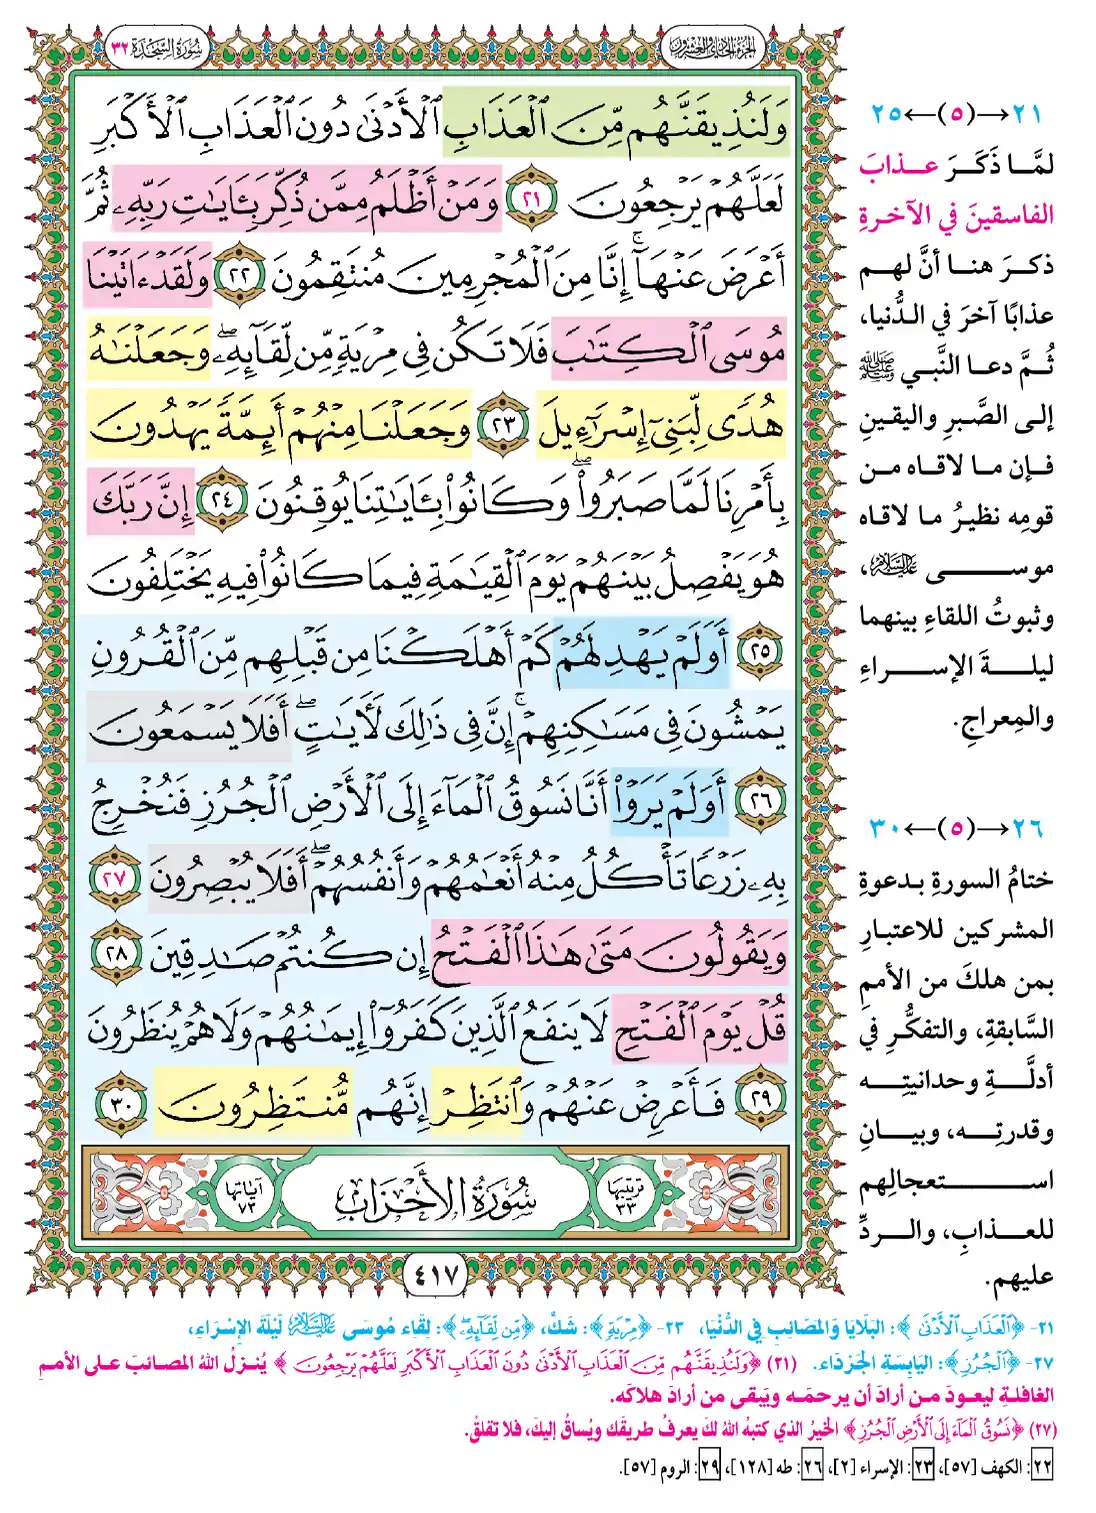 الجزء الحادي والعشرون
سورة السجدة ٣٢
وَلَنُذِيقَنَّهُم مِّنَ ٱلْعَذَابِ ٱلْأَدْنَىٰ دُونَ ٱلْعَذَابِ ٱلْأَكْبَرِ
لَعَلَّهُمْ يَرْجِعُونَ ٢١ وَمَنْ أَظْلَمُ مِمَّن ذُكِّرَ بِـَٔايَـٰتِ رَبِّهِۦ ثُمَّ
أَعْرَضَ عَنْهَآ ۚ إِنَّا مِنَ ٱلْمُجْرِمِينَ مُنتَقِمُونَ ٢٢ وَلَقَدْ ءَاتَيْنَا
مُوسَى ٱلْكِتَـٰبَ فَلَا تَكُن فِى مِرْيَةٍ مِّن لِّقَآئِهِۦ ۖ وَجَعَلْنَـٰهُ
هُدًى لِّبَنِىٓ إِسْرَٰٓءِيلَ ٢٣ وَجَعَلْنَا مِنْهُمْ أَئِمَّةً يَهْدُونَ
بِأَمْرِنَا لَمَّا صَبَرُوا۟ ۖ وَكَانُوا۟ بِـَٔايَـٰتِنَا يُوقِنُونَ ٢٤ إِنَّ رَبَّكَ
هُوَ يَفْصِلُ بَيْنَهُمْ يَوْمَ ٱلْقِيَـٰمَةِ فِيمَا كَانُوا۟ فِيهِ يَخْتَلِفُونَ
٢٥ أَوَلَمْ يَهْدِ لَهُمْ كَمْ أَهْلَكْنَا مِن قَبْلِهِم مِّنَ ٱلْقُرُونِ
يَمْشُونَ فِى مَسَـٰكِنِهِمْ ۚ إِنَّ فِى ذَٰلِكَ لَـَٔايَـٰتٍ ۖ أَفَلَا يَسْمَعُونَ
٢٦ أَوَلَمْ يَرَوْا۟ أَنَّا نَسُوقُ ٱلْمَآءَ إِلَى ٱلْأَرْضِ ٱلْجُرُزِ فَنُخْرِجُ
بِهِۦ زَرْعًا تَأْكُلُ مِنْهُ أَنْعَـٰمُهُمْ وَأَنفُسُهُمْ ۖ أَفَلَا يُبْصِرُونَ ٢٧
وَيَقُولُونَ مَتَىٰ هَـٰذَا ٱلْفَتْحُ إِن كُنتُمْ صَـٰدِقِينَ ٢٨
قُلْ يَوْمَ ٱلْفَتْحِ لَا يَنفَعُ ٱلَّذِينَ كَفَرُوٓا۟ إِيمَـٰنُهُمْ وَلَا هُمْ يُنظَرُونَ
٢٩ فَأَعْرِضْ عَنْهُمْ وَٱنتَظِرْ إِنَّهُم مُّنتَظِرُونَ ٣٠
ترتيبها ٣٣ سورة الأحزاب آياتها ٧٣
٤١٧
٢١→(٥)←٢٥
لمَّا ذَكَرَ عذابَ
الفاسقينَ في الآخرةِ
ذكرَ هنا أنَّ لهم
عذابًا آخرَ في الدُّنيا،
ثُمَّ دعا النَّبي ﷺ
إلى الصَّبرِ واليقينِ
فإن ما لاقاه من
قومِه نظيرُ ما لاقاه
موسى عليه السلام،
وثبوتُ اللقاءِ بينهما
ليلةَ الإسراءِ
والمِعراجِ.
٢٦→(٥)←٣٠
ختامُ السورةِ بدعوةِ
المشركين للاعتبارِ
بمن هلكَ من الأممِ
السَّابقةِ، والتفكُّرِ في
أدلَّةِ وحدانيتِه
وقدرتِه، وبيانِ
استعجالِهم
للعذابِ، والردِّ
عليهم.
٢١- ﴿ٱلْعَذَابِ ٱلْأَدْنَىٰ﴾: البَلَايَا وَالمَصَائِبِ فِي الدُّنْيَا، ٢٣- ﴿مِرْيَةٍ﴾: شَكٍّ، ﴿مِّن لِّقَآئِهِۦ﴾: لِقَاءِ مُوسَى عليه السلام لَيْلَةَ الإِسْرَاءِ،
٢٧- ﴿ٱلْجُرُزِ﴾: اليَابِسَةِ الجَرْدَاءِ. (٢١) ﴿وَلَنُذِيقَنَّهُم مِّنَ ٱلْعَذَابِ ٱلْأَدْنَىٰ دُونَ ٱلْعَذَابِ ٱلْأَكْبَرِ لَعَلَّهُمْ يَرْجِعُونَ﴾ يُنزلُ اللهُ المصائبَ على الأممِ
الغافلةِ ليعودَ من أرادَ أن يرحمَه ويَبقى من أرادَ هلاكَه.
(٢٧) ﴿نَسُوقُ ٱلْمَآءَ إِلَى ٱلْأَرْضِ ٱلْجُرُزِ﴾ الخيرُ الذي كتبهُ اللهُ لكَ يعرفُ طريقَك ويُساقُ إليكَ، فلا تقلقْ.
٢٢: الكهف [٥٧]، ٢٣: الإسراء [٢]، ٢٦: طه [١٢٨]، ٢٩: الروم [٥٧].